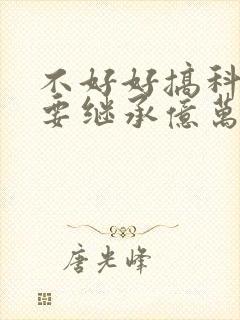 不好好搞科
要继承億萬
唐光峰